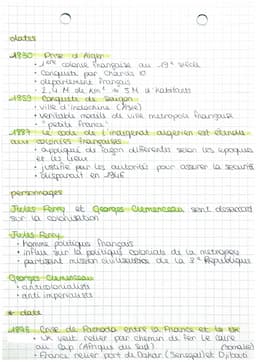 dates
1830 Prise d'Alger
• 1ère colonie française au 19e siècle
• Conquête par Charles 10
• département français
• 2,4 M de km² → 3 M d'habitants
1859 Conquête de Saigon
• ville d'Indochine (Asie)
• véritable modèle de ville métropole française
• "petite France"
1881 Le code de l'indigénat algérien est étendu
aux colonies françaises
• appliqué de façon différente selon les époques
et les lieux
• justifié par les autorités pour assurer la sécurité
• disparaît en 1946
personnages
Jules Ferry et Georges Clemenceau sont désaccord
sur la colonisation
Jules Ferry
• homme politique français
• influe sur la politique coloniale de la métropole
• partisant mission civilisatrice de la 3e République
Georges Clemenceau
• anticolonialiste
• anti impérialiste
* date
1898 Crise de Fachoda entre la France et le UK
• UK veut relier par chemin de fer le Caire
au Cap (Afrique du Sud) (Somalie)
• France relier port de Dakar (Sénégal) à Djibouti